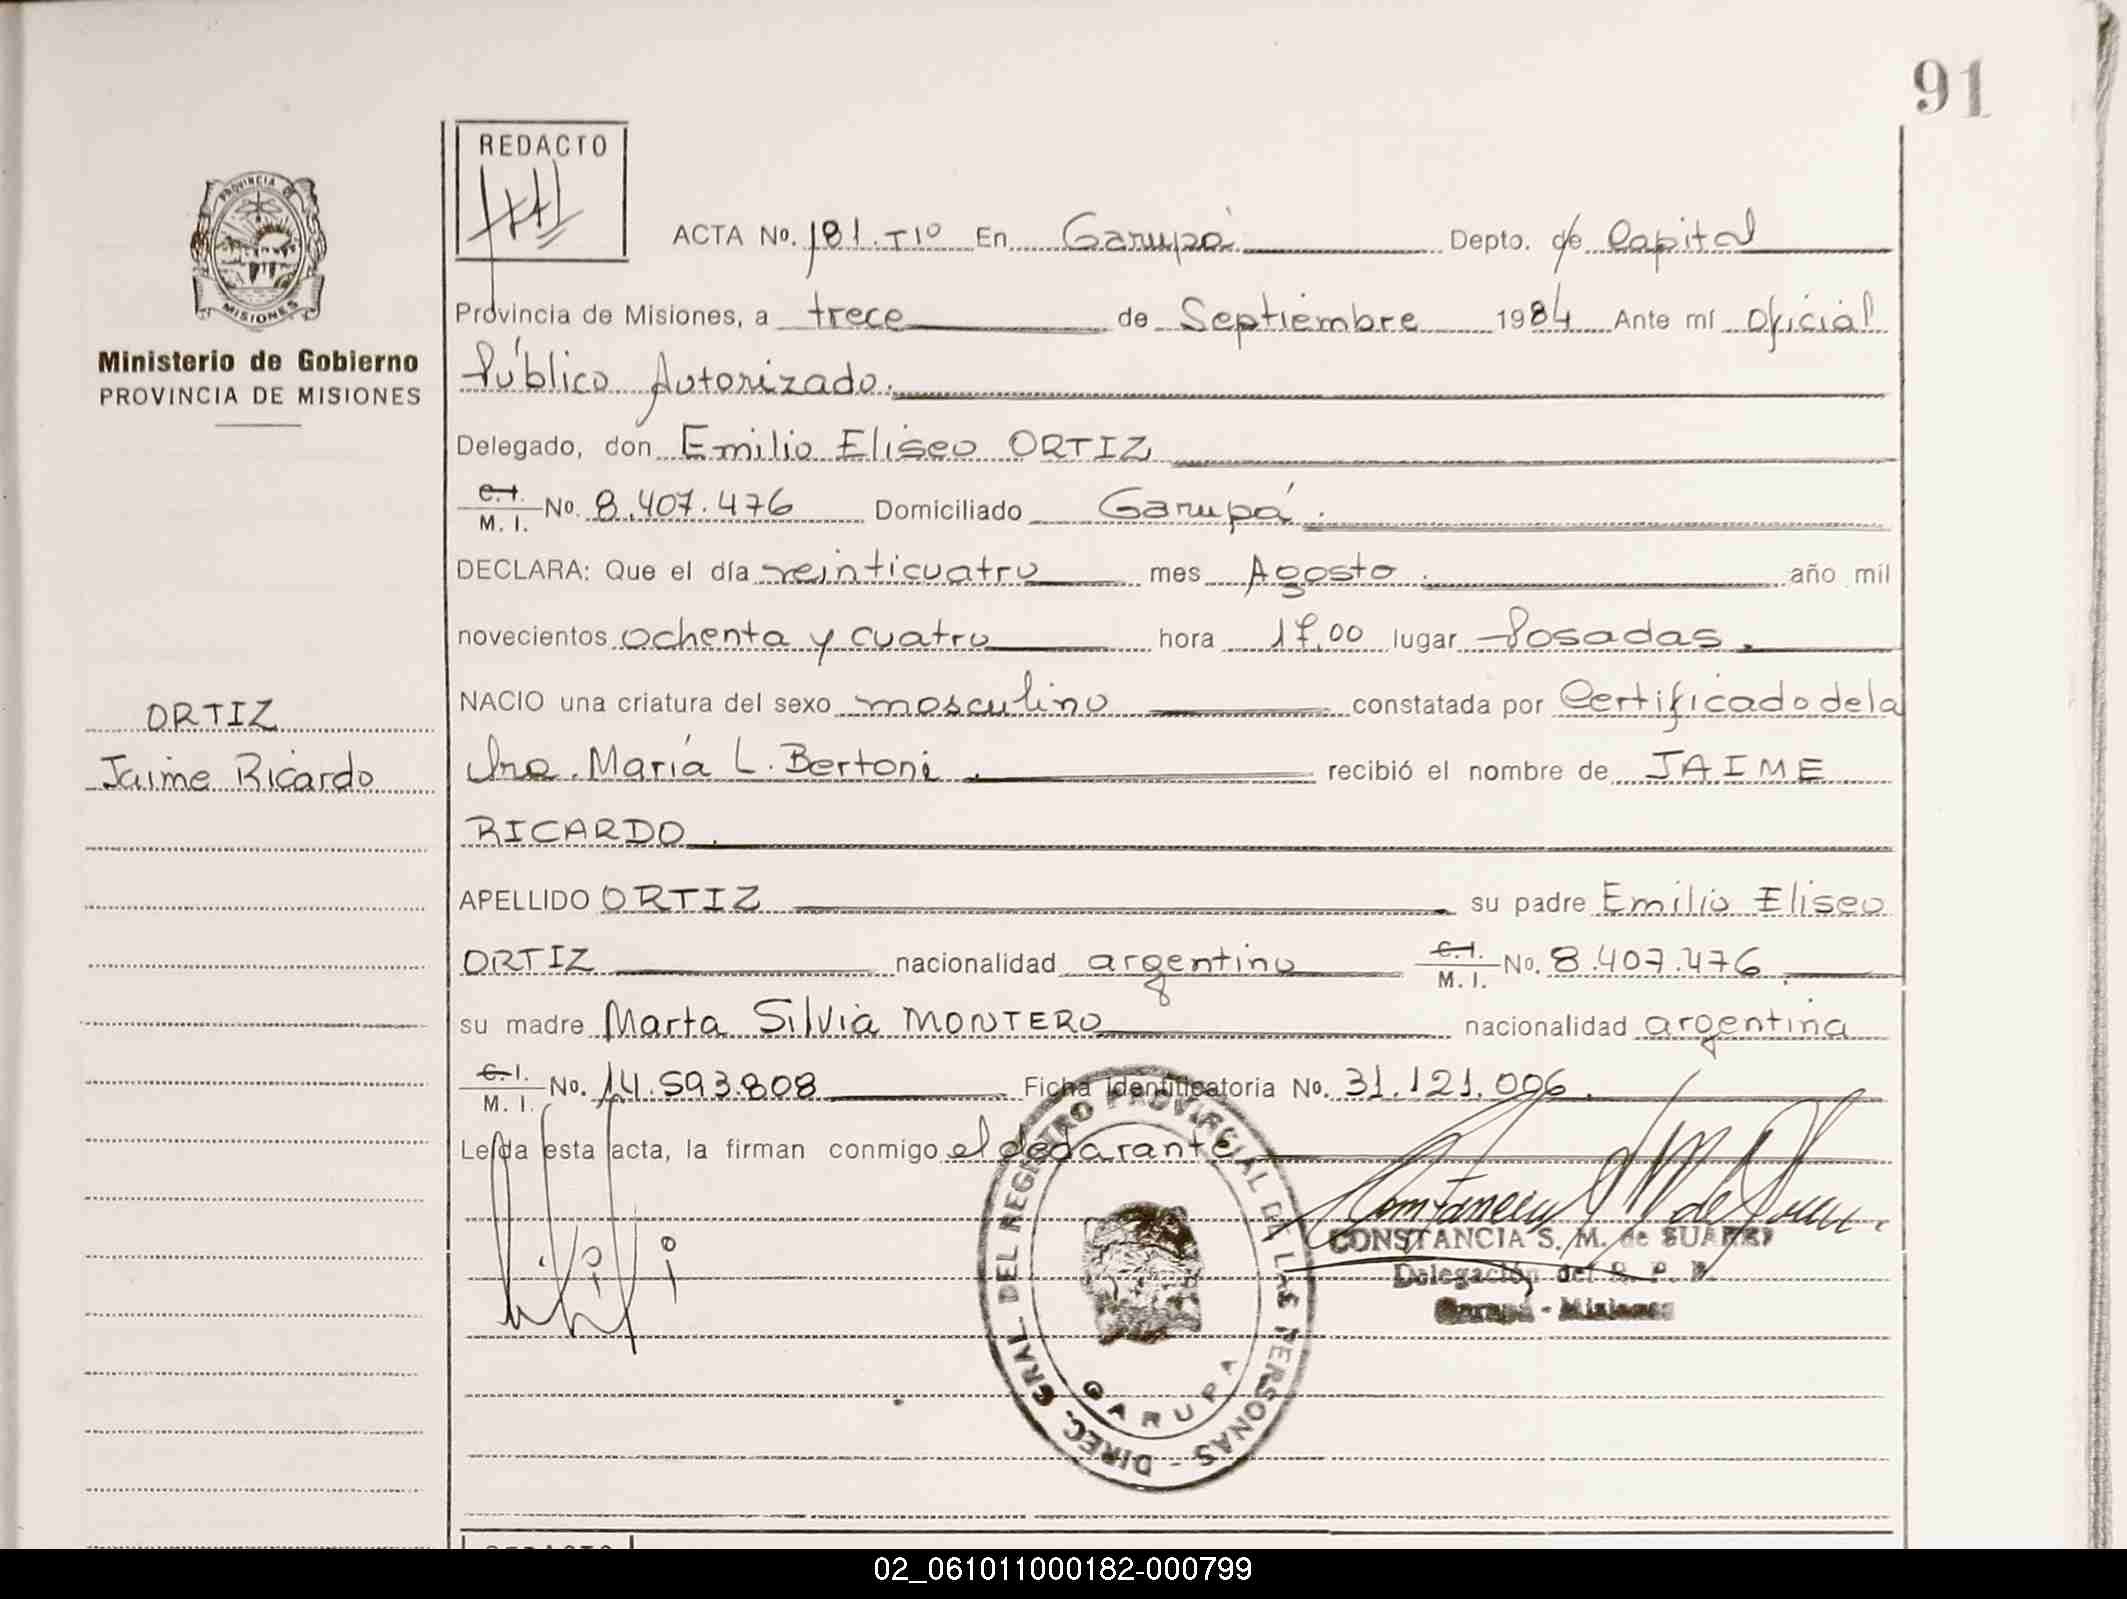 91
REDACTO
PROVINCIA DE
MISIONES
Ministerio de Gobierno
PROVINCIA DE MISIONES
ACTA No. 181. T1º En Garupá Depto. de Capital
Provincia de Misiones, a trece de Septiembre 1984 Ante mí Oficial
Público Autorizado.
Delegado, don Emilio Eliseo ORTIZ
C. I. M. I. No. 8.407.476 Domiciliado Garupá.
DECLARA: Que el día veinticuatro mes Agosto. año mil
novecientos ochenta y cuatro hora 17,00 lugar Posadas.
NACIO una criatura del sexo masculino constatada por Certificado de la
Dra. María L. Bertoni. recibió el nombre de JAIME
RICARDO.
ORTIZ
Jaime Ricardo
APELLIDO ORTIZ su padre Emilio Eliseo
ORTIZ nacionalidad argentino C. I. M. I. No. 8.407.476.
su madre Marta Silvia MONTERO nacionalidad argentina
C. I. M. I. No. 14.593.808 Ficha identificatoria No. 31.121.006.
Leída esta acta, la firman conmigo el declarante
DIREC. GRAL. DEL REGISTRO PROVINCIAL DE LAS PERSONAS -
GARUPA
CONSTANCIA S. M. de SUAREZ
Delegación del R. P. P.
Garupá - Misiones
REDACTO
02_061011000182-000799